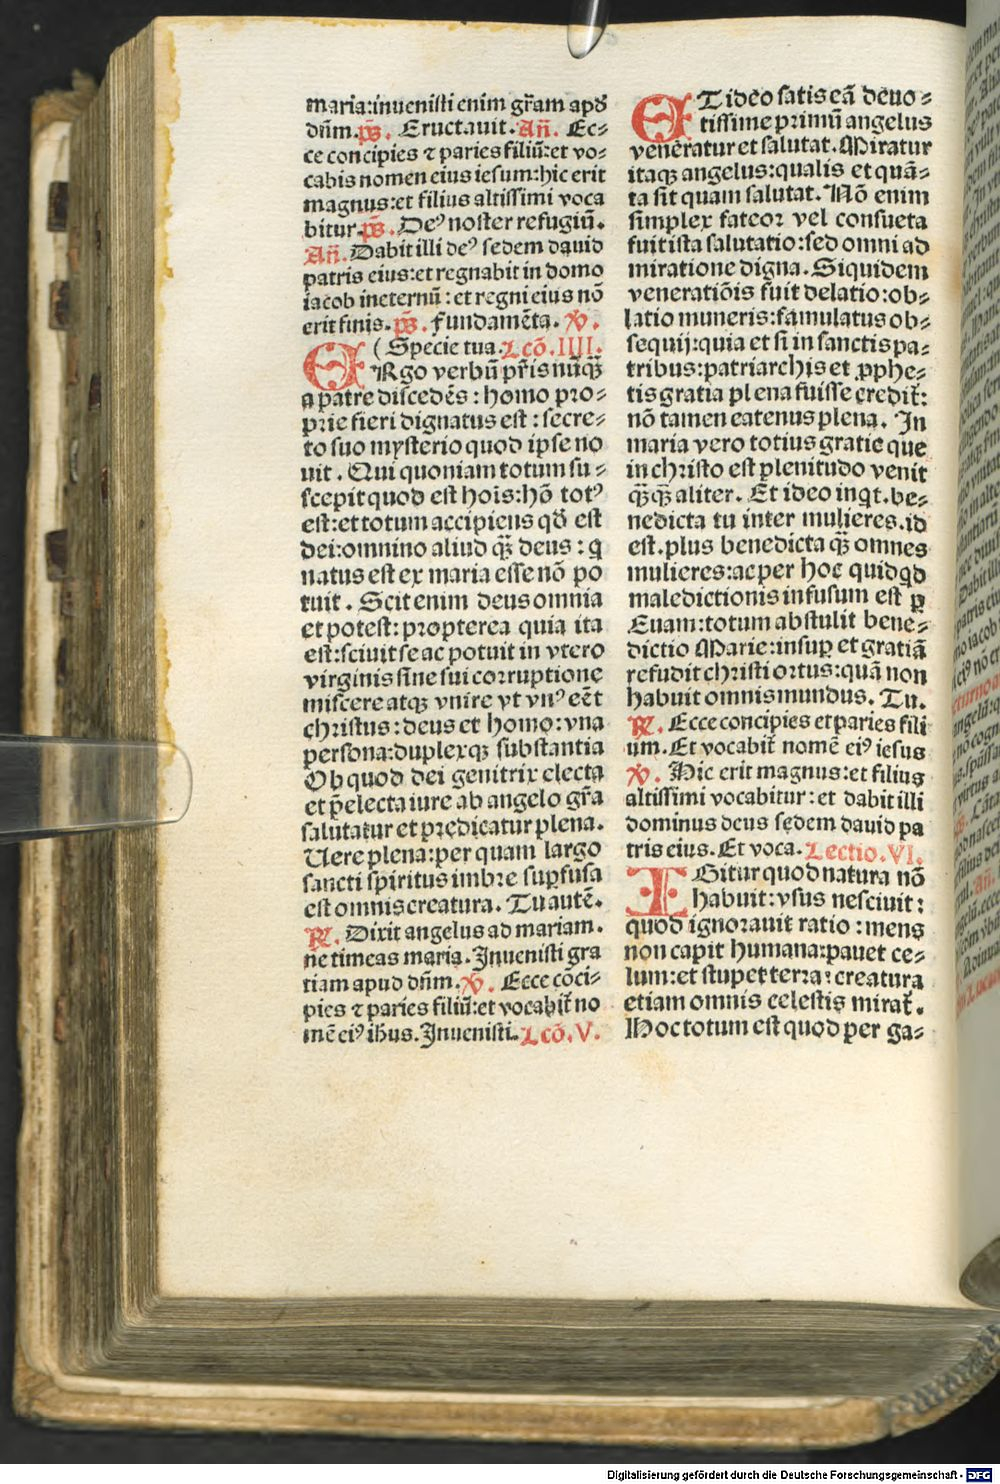 maria:inuenisti enim gr̃am apd̕
dñm.ps̕. Eructauit.Añ. Ec⸗
ce concipies ⁊ paries filiũ:et vo⸗
cabis nomen eius iesum:hic erit
magnus:et filius altissimi voca
bitur.ps̕. Deꝰ noster refugiũ.
Añ. Dabit illi deꝰ sedem dauid
patris eius:et regnabit in domo
iacob ineternũ: et regni eius nõ
erit finis.ps̕. fundamẽta. V̕.
(Specie tua.Lcõ.IIII.
ERgo verbũ pr̃is nũq̃ȝ
a patre discedẽs: homo pro⸗
prie fieri dignatus est: secre⸗
to suo mysterio quod ipse no
uit. Qui quoniam totum su⸗
scepit quod est hoĩs:hõ totꝰ
est:et totum accipiens qd̕ est
dei:omnino aliud q̃ȝ deus: q
natus est ex maria esse nõ po
tuit. Scit enim deus omnia
et potest: propterea quia ita
est:sciuit se ac potuit in vtero
virginis sine sui corruptione
miscere atqȝ vnire vt vnꝰ eẽt
christus: deus et homo: vna
persona:duplexqȝ substantia
Ob quod dei genitrix electa
et p̃electa iure ab angelo gr̃a
salutatur et predicatur plena.
Uere plena:per quam largo
sancti spiritus imbre suꝑfusa
est omnis creatura. Tu autẽ.
R̕. Dixit angelus ad mariam.
ne timeas maria. Inuenisti gra
tiam apud dñm.V̕. Ecce cõci⸗
pies ⁊ paries filiũ:et vocabit̃ no
mẽ eiꝰ ihus. Inuenisti.Lcõ.V.
ET ideo satis eã deuo⸗
tissime primũ angelus
veneratur et salutat. Miratur
itaqȝ angelus:qualis et quã⸗
ta sit quam salutat. Nõ enim
simplex fateor vel consueta
fuit ista salutatio: sed omni ad
miratione digna. Siquidem
veneratiõis fuit delatio: ob⸗
latio muneris: famulatus ob⸗
sequij:quia et si in sanctis pa⸗
tribus:patriarchis et ꝓphe⸗
tis gratia plena fuisse credit̃:
nõ tamen eatenus plena. In
maria vero totius gratie que
in christo est plenitudo venit
q̃ȝq̃ȝ aliter. Et ideo inqt. be⸗
nedicta tu inter mulieres. id
est. plus benedicta q̃ȝ omnes
mulieres: ac per hoc quidqd
maledictionis infusum est ꝑ
Euam: totum abstulit bene⸗
dictio Marie: insuꝑ et gratiã
refudit christi ortus: quã non
habuit omnis mundus. Tu.
R̕. Ecce concipies et paries fili
um. Et vocabit̃ nomẽ eiꝰ iesus
V̕. Hic erit magnus: et filius
altissimi vocabitur: et dabit illi
dominus deus sedem dauid pa
tris eius. Et voca. Lectio.VI.
IGitur quod natura nõ
habuit: vsus nesciuit:
quod ignorauit ratio: mens
non capit humana: pauet ce⸗
lum: et stupet terra: creatura
etiam omnis celestis mirat̃.
Hoc totum est quod per ga⸗
Digitalisierung gefördert durch die Deutsche Forschungsgemeinschaft - DFG